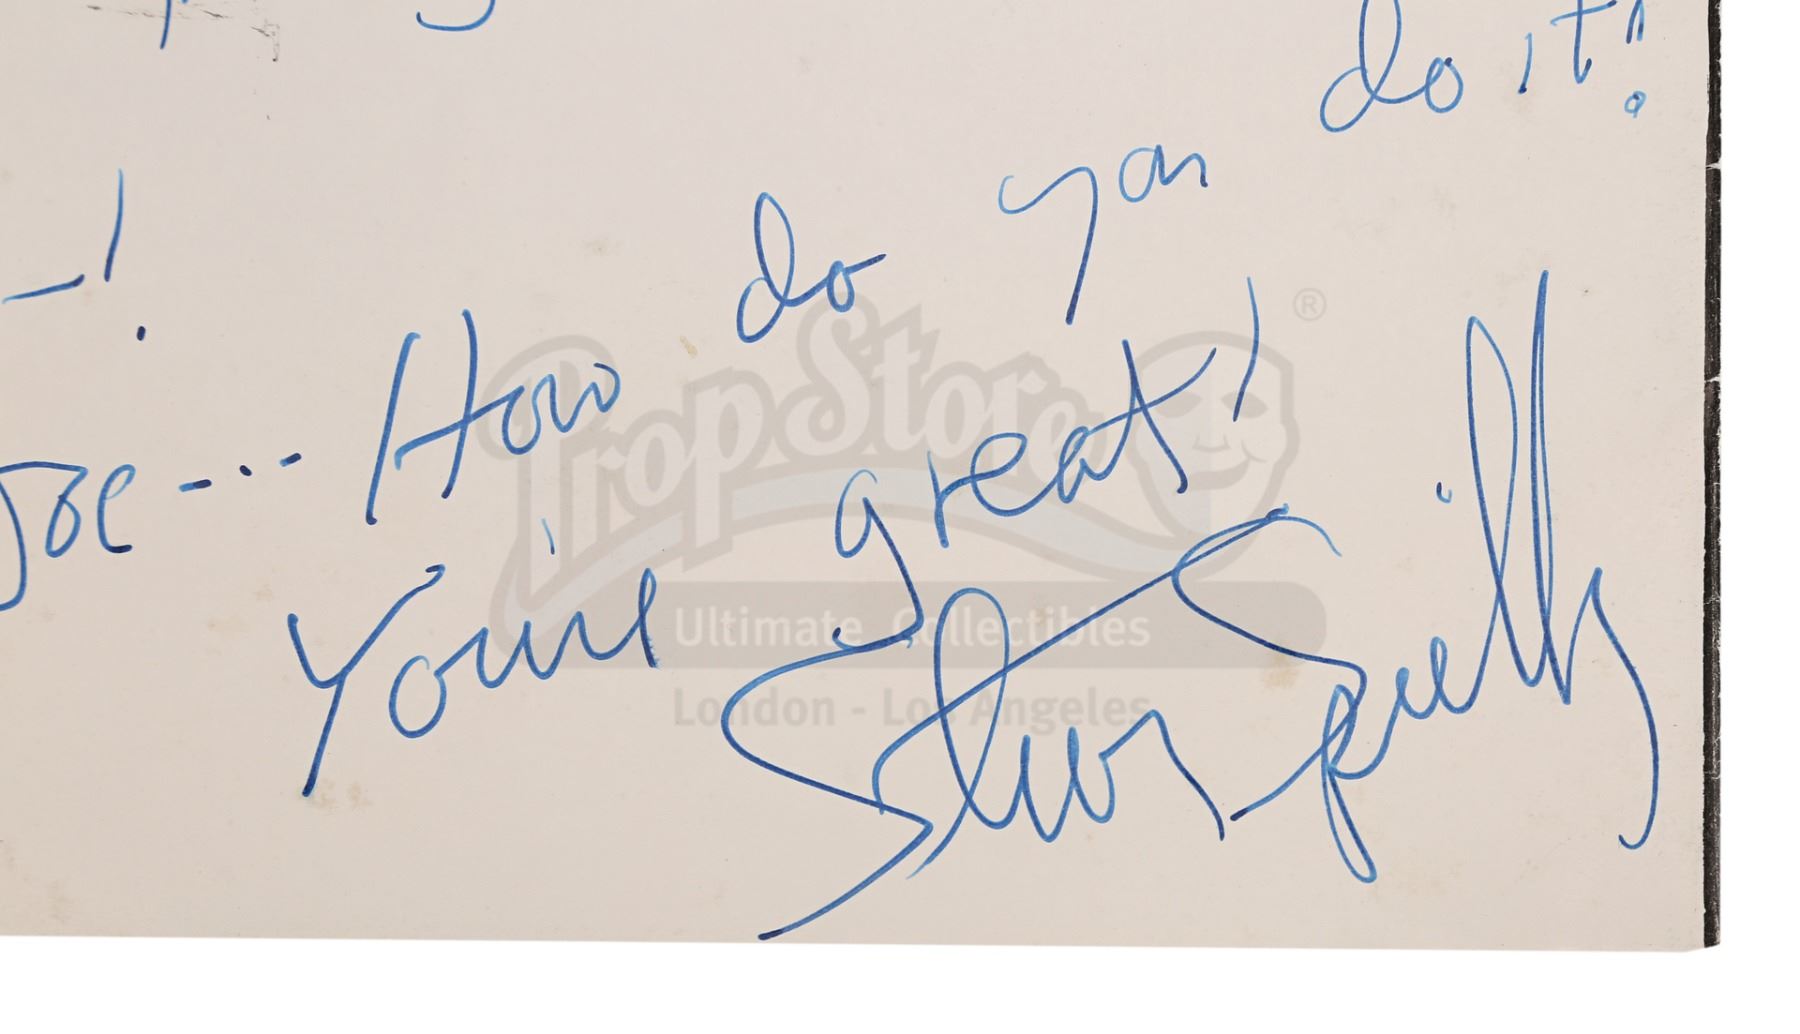 Joe --- How do you do it!
You're great!
Steven Spielberg
PropStore®
Ultimate Collectibles
London - Los Angeles